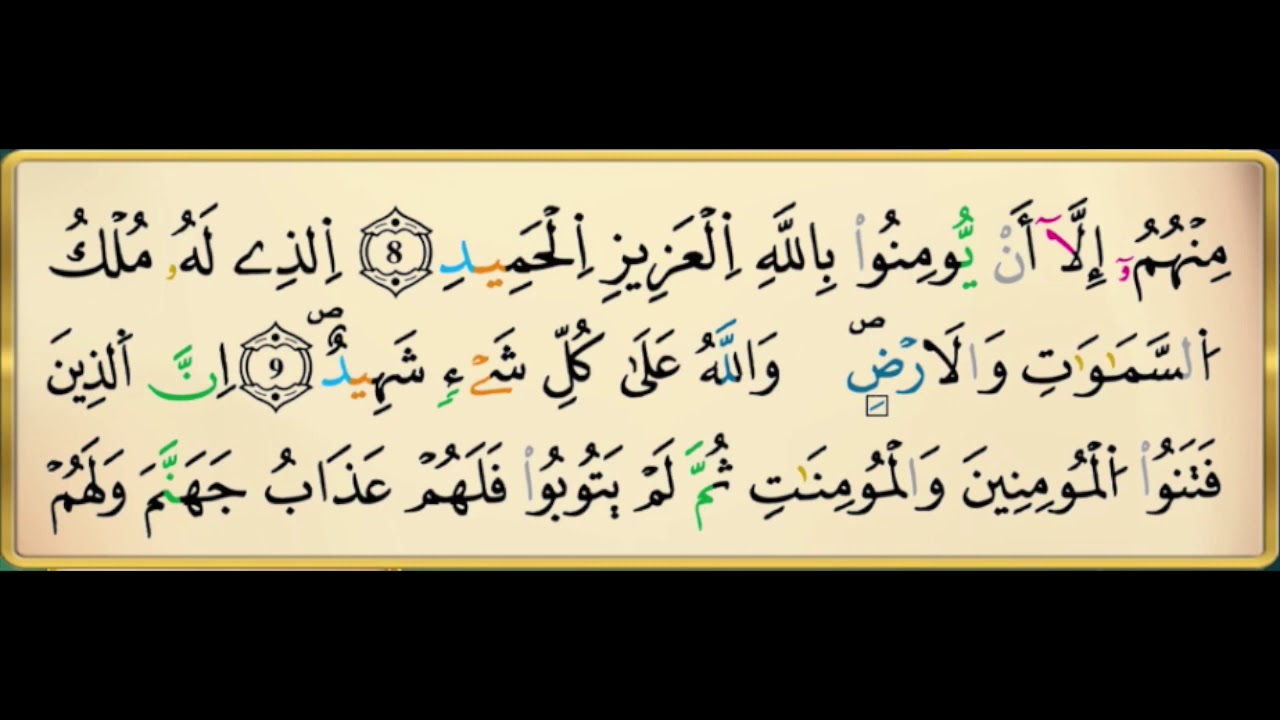 مِنْهُمُۥٓ إِلَّآ أَنْ يُّومِنُواْ بِاللَّهِ اِ۬لْعَزِيزِ اِ۬لْحَمِيدِ 8 اِ۬لذِے لَهُۥ مُلْكُ
اُ۬لسَّمَٰوَٰتِ وَالَارْضِۖ وَاللَّهُ عَلَىٰ كُلِّ شَےْءٍ شَهِيدٌۖ 9 اِنَّ اَ۬لذِينَ
فَتَنُواْ اُ۬لْمُومِنِينَ وَالْمُومِنَٰتِ ثُمَّ لَمْ يَتُوبُواْ فَلَهُمْ عَذَابُ جَهَنَّمَ وَلَهُمْ